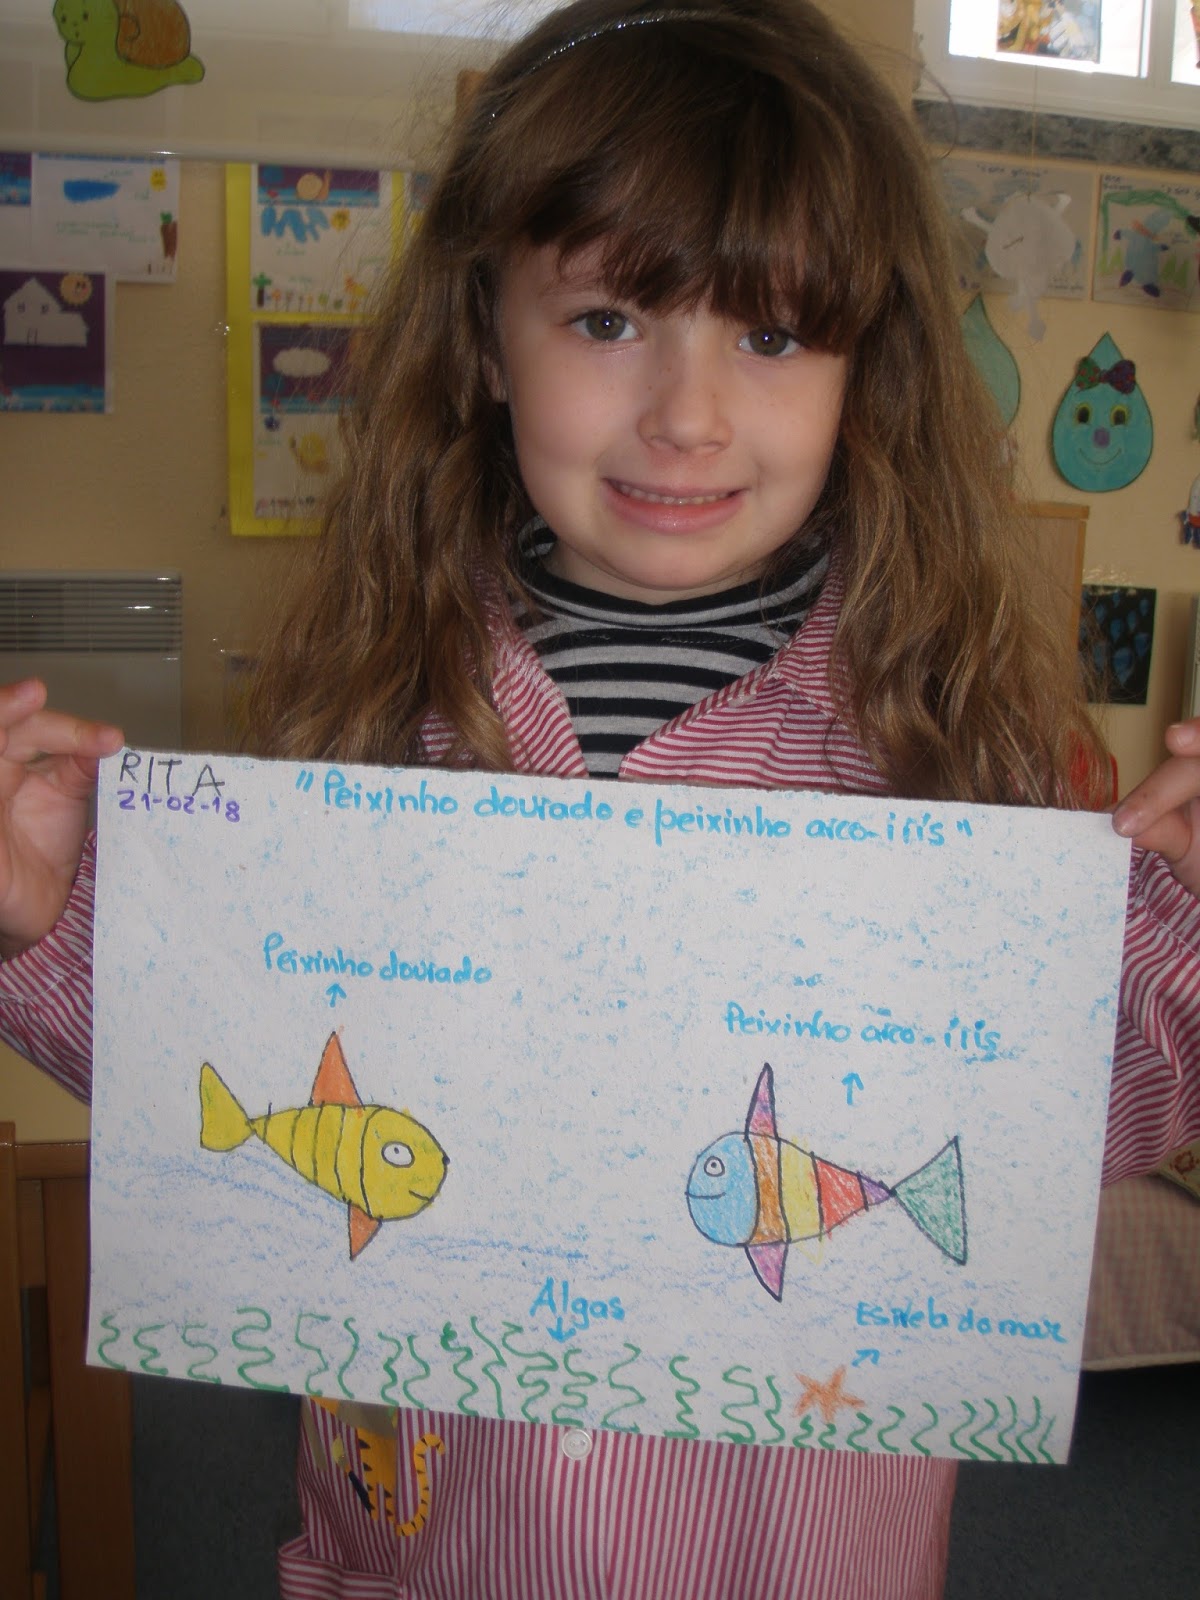 RITA
21-02-18
"Peixinho dourado e peixinho arco-íris"
Peixinho dourado
Peixinho arco-íris
Algas
Estrela do mar